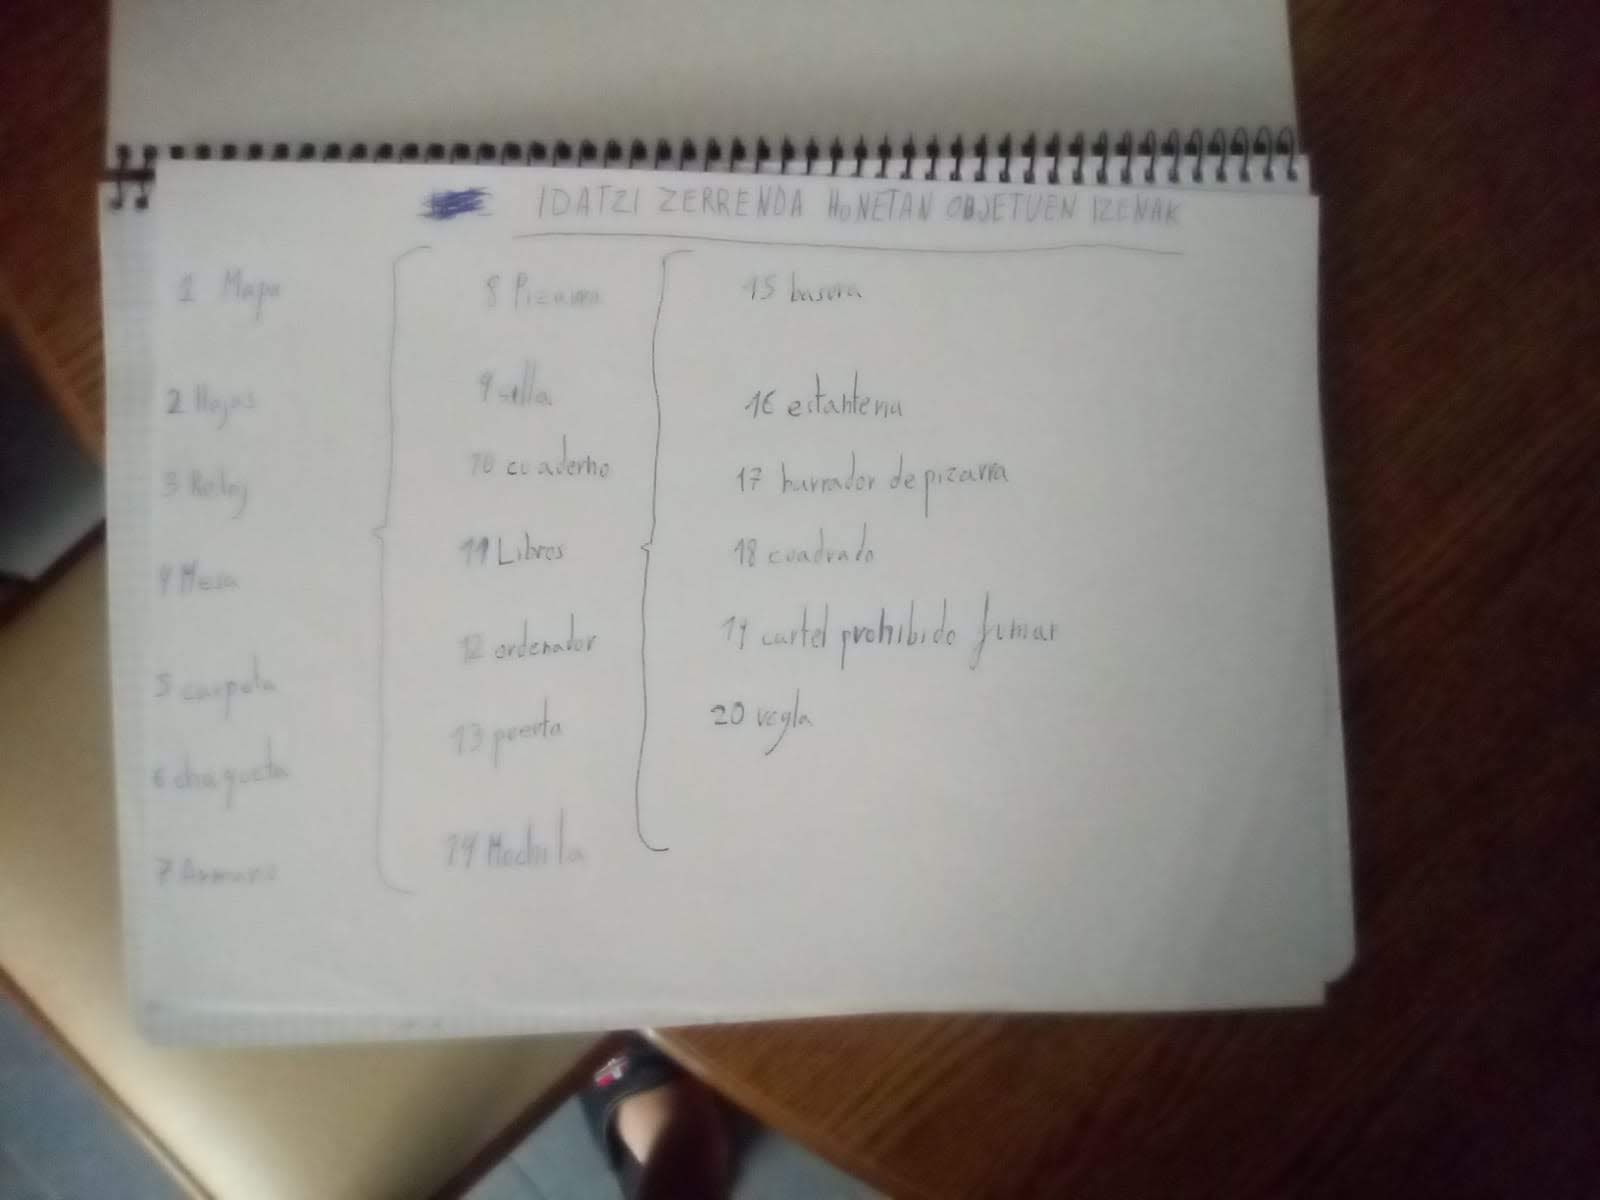 IDATZI ZERRENDA HONETAN OBJETUEN IZENAK
1 Mapa
2 Hojas
3 Reloj
4 Mesa
5 carpeta
6 chaqueta
7 Armario
8 Pizarra
9 silla
10 cuaderno
11 Libros
12 ordenador
13 puerta
14 Mochila
15 basura
16 estanteria
17 burrador de pizarra
18 cuadrado
19 cartel prohibido fumar
20 regla